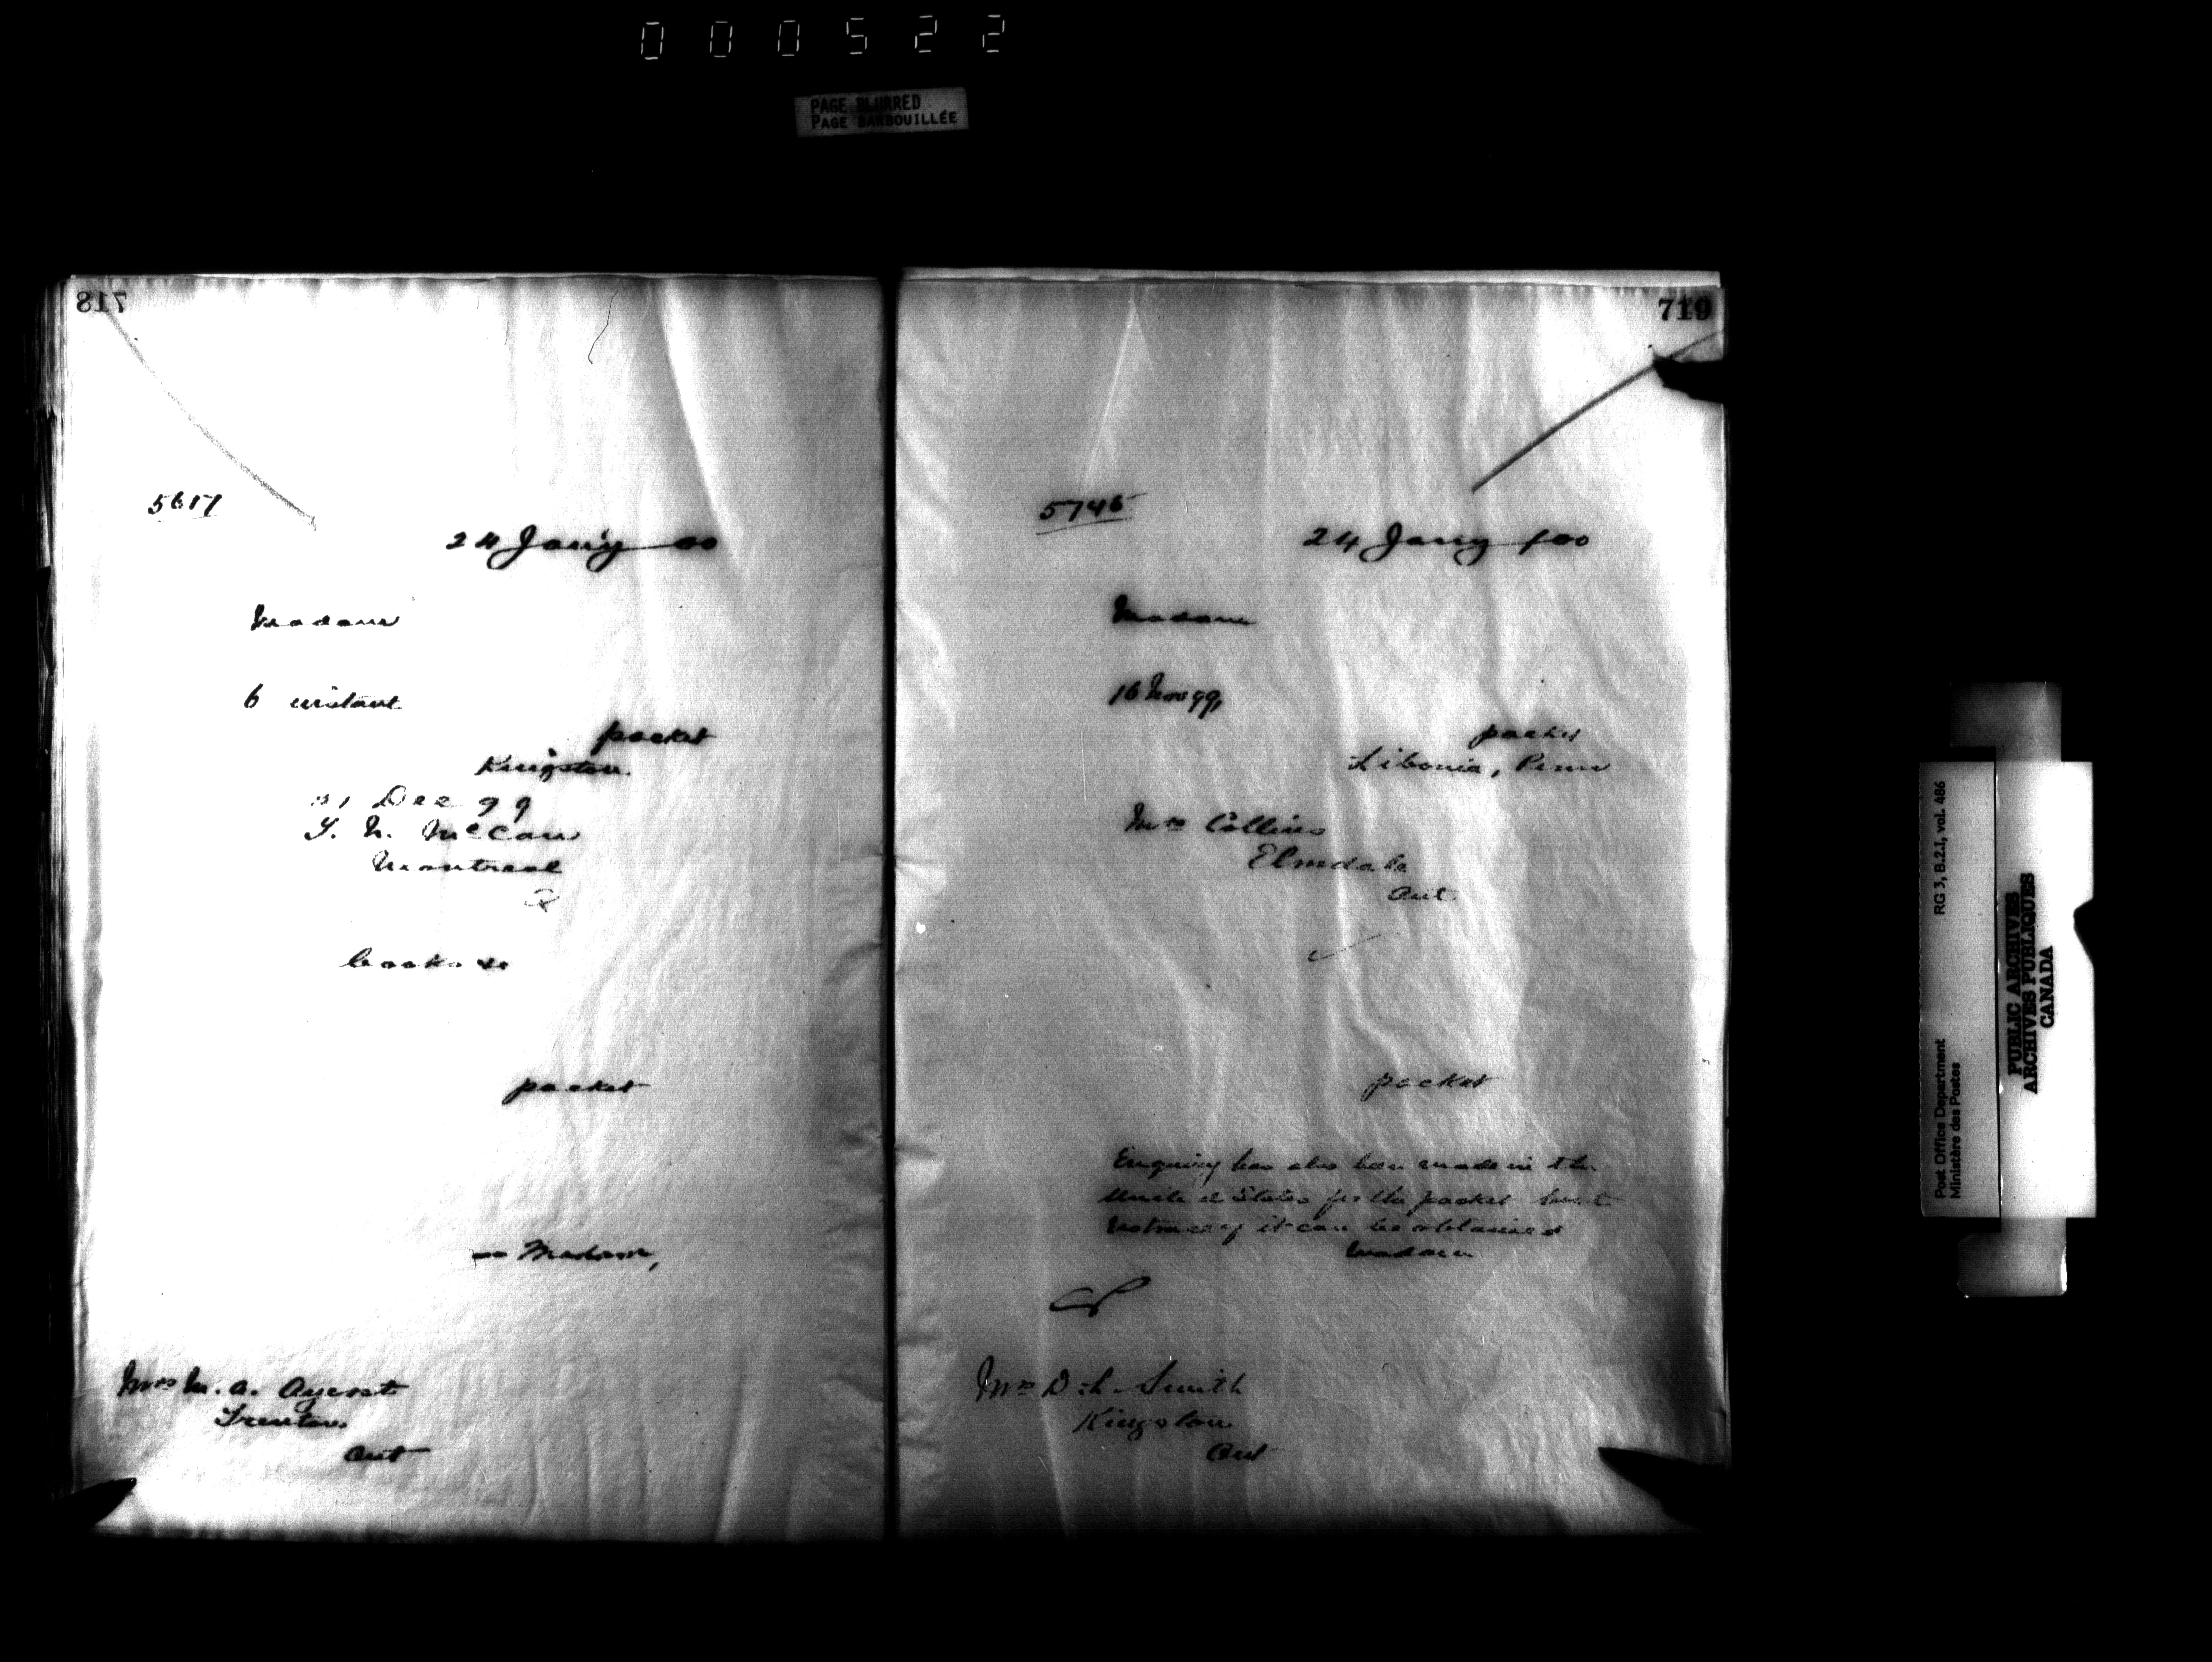 000522
PAGE BLURRED
PAGE BARBOUILLÉE
718
5617
24 Jany 00
Madam
6 instant
packet
Kingston
31 Dec 99
McCaw
Montreal
books &c
packet
Madam,
Mrs M. A. Aycrst
Trenton
Ont
719
5745
24 Jany /00
Madam
16 Nov 99,
packet
Libonia, Penn
Mrs Collins
Elmdale
Ont
packet
Enquiry has also been made in the
United States for the packet but
no trace of it can be obtained
Madam
Mrs D. L. Smith
Kingston
Ont
Post Office Department
Ministère des Postes
RG 3, B.2.I, vol. 486
PUBLIC ARCHIVES
ARCHIVES PUBLIQUES
CANADA